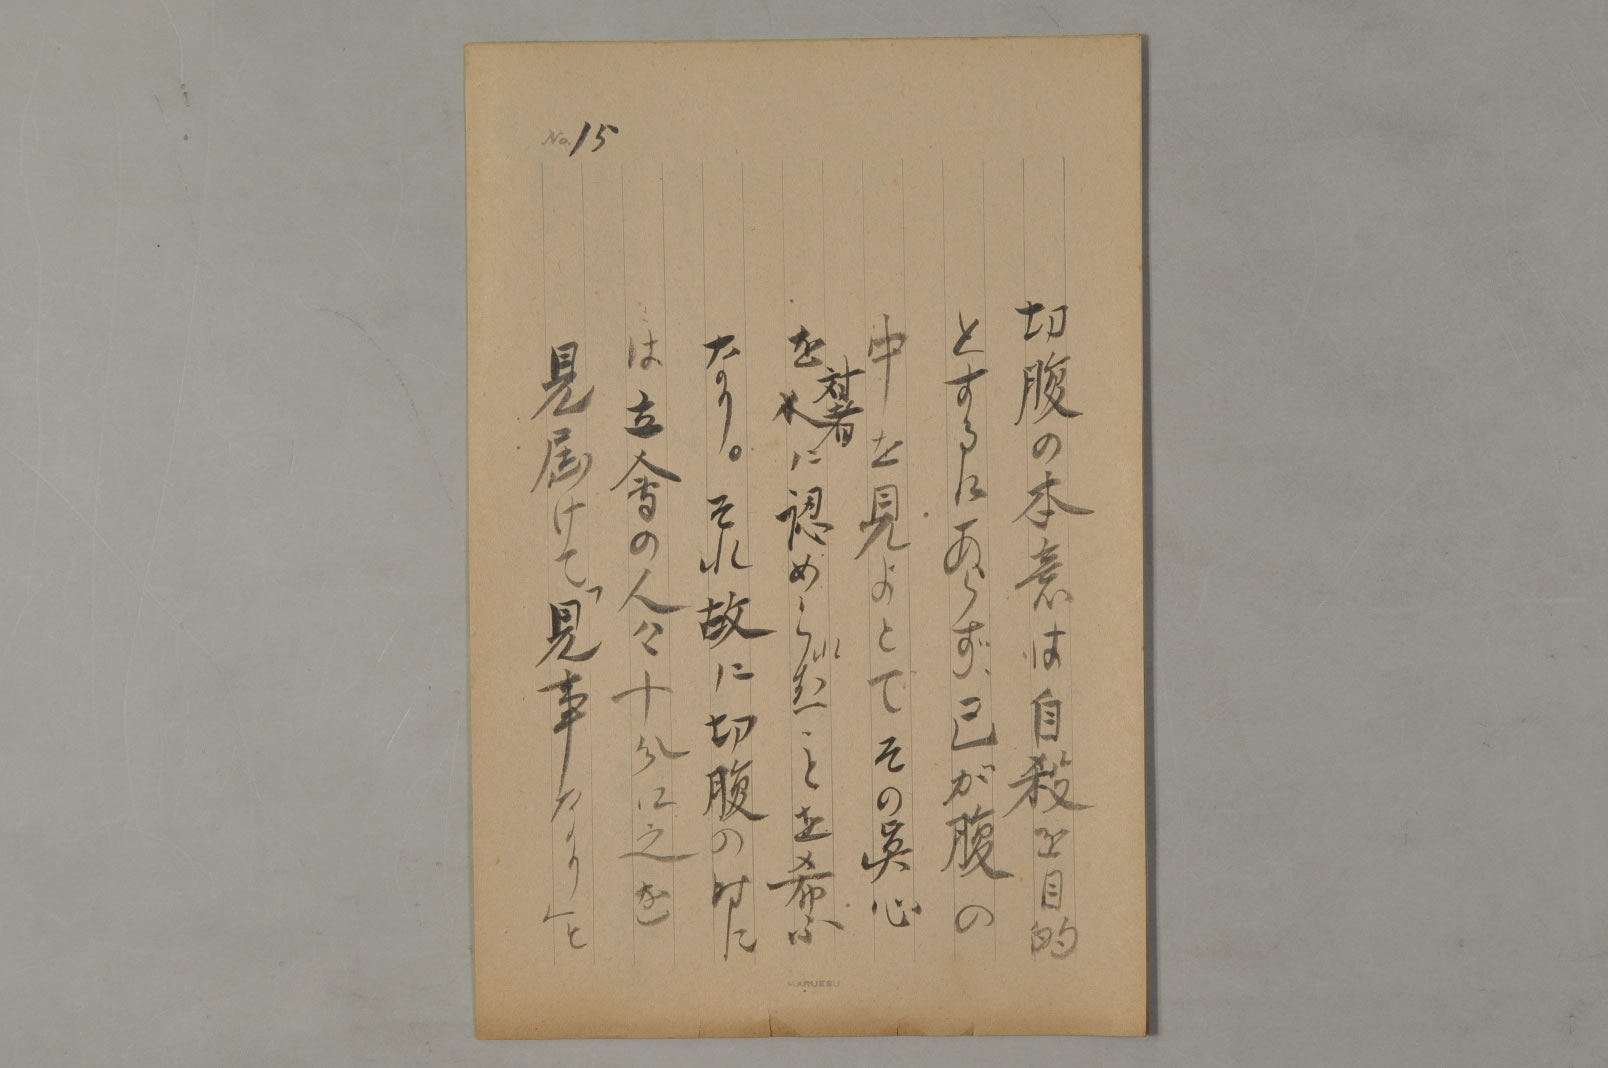 No. 15
切腹の本意は自殺を目的
とするにあらず、己が腹の
中を見よとてその真心
を対者に認められんことを希ふ
なり。それ故に切腹の時に
は立會の人々十分に之を
見届けて「見事なり」と
MARUESU